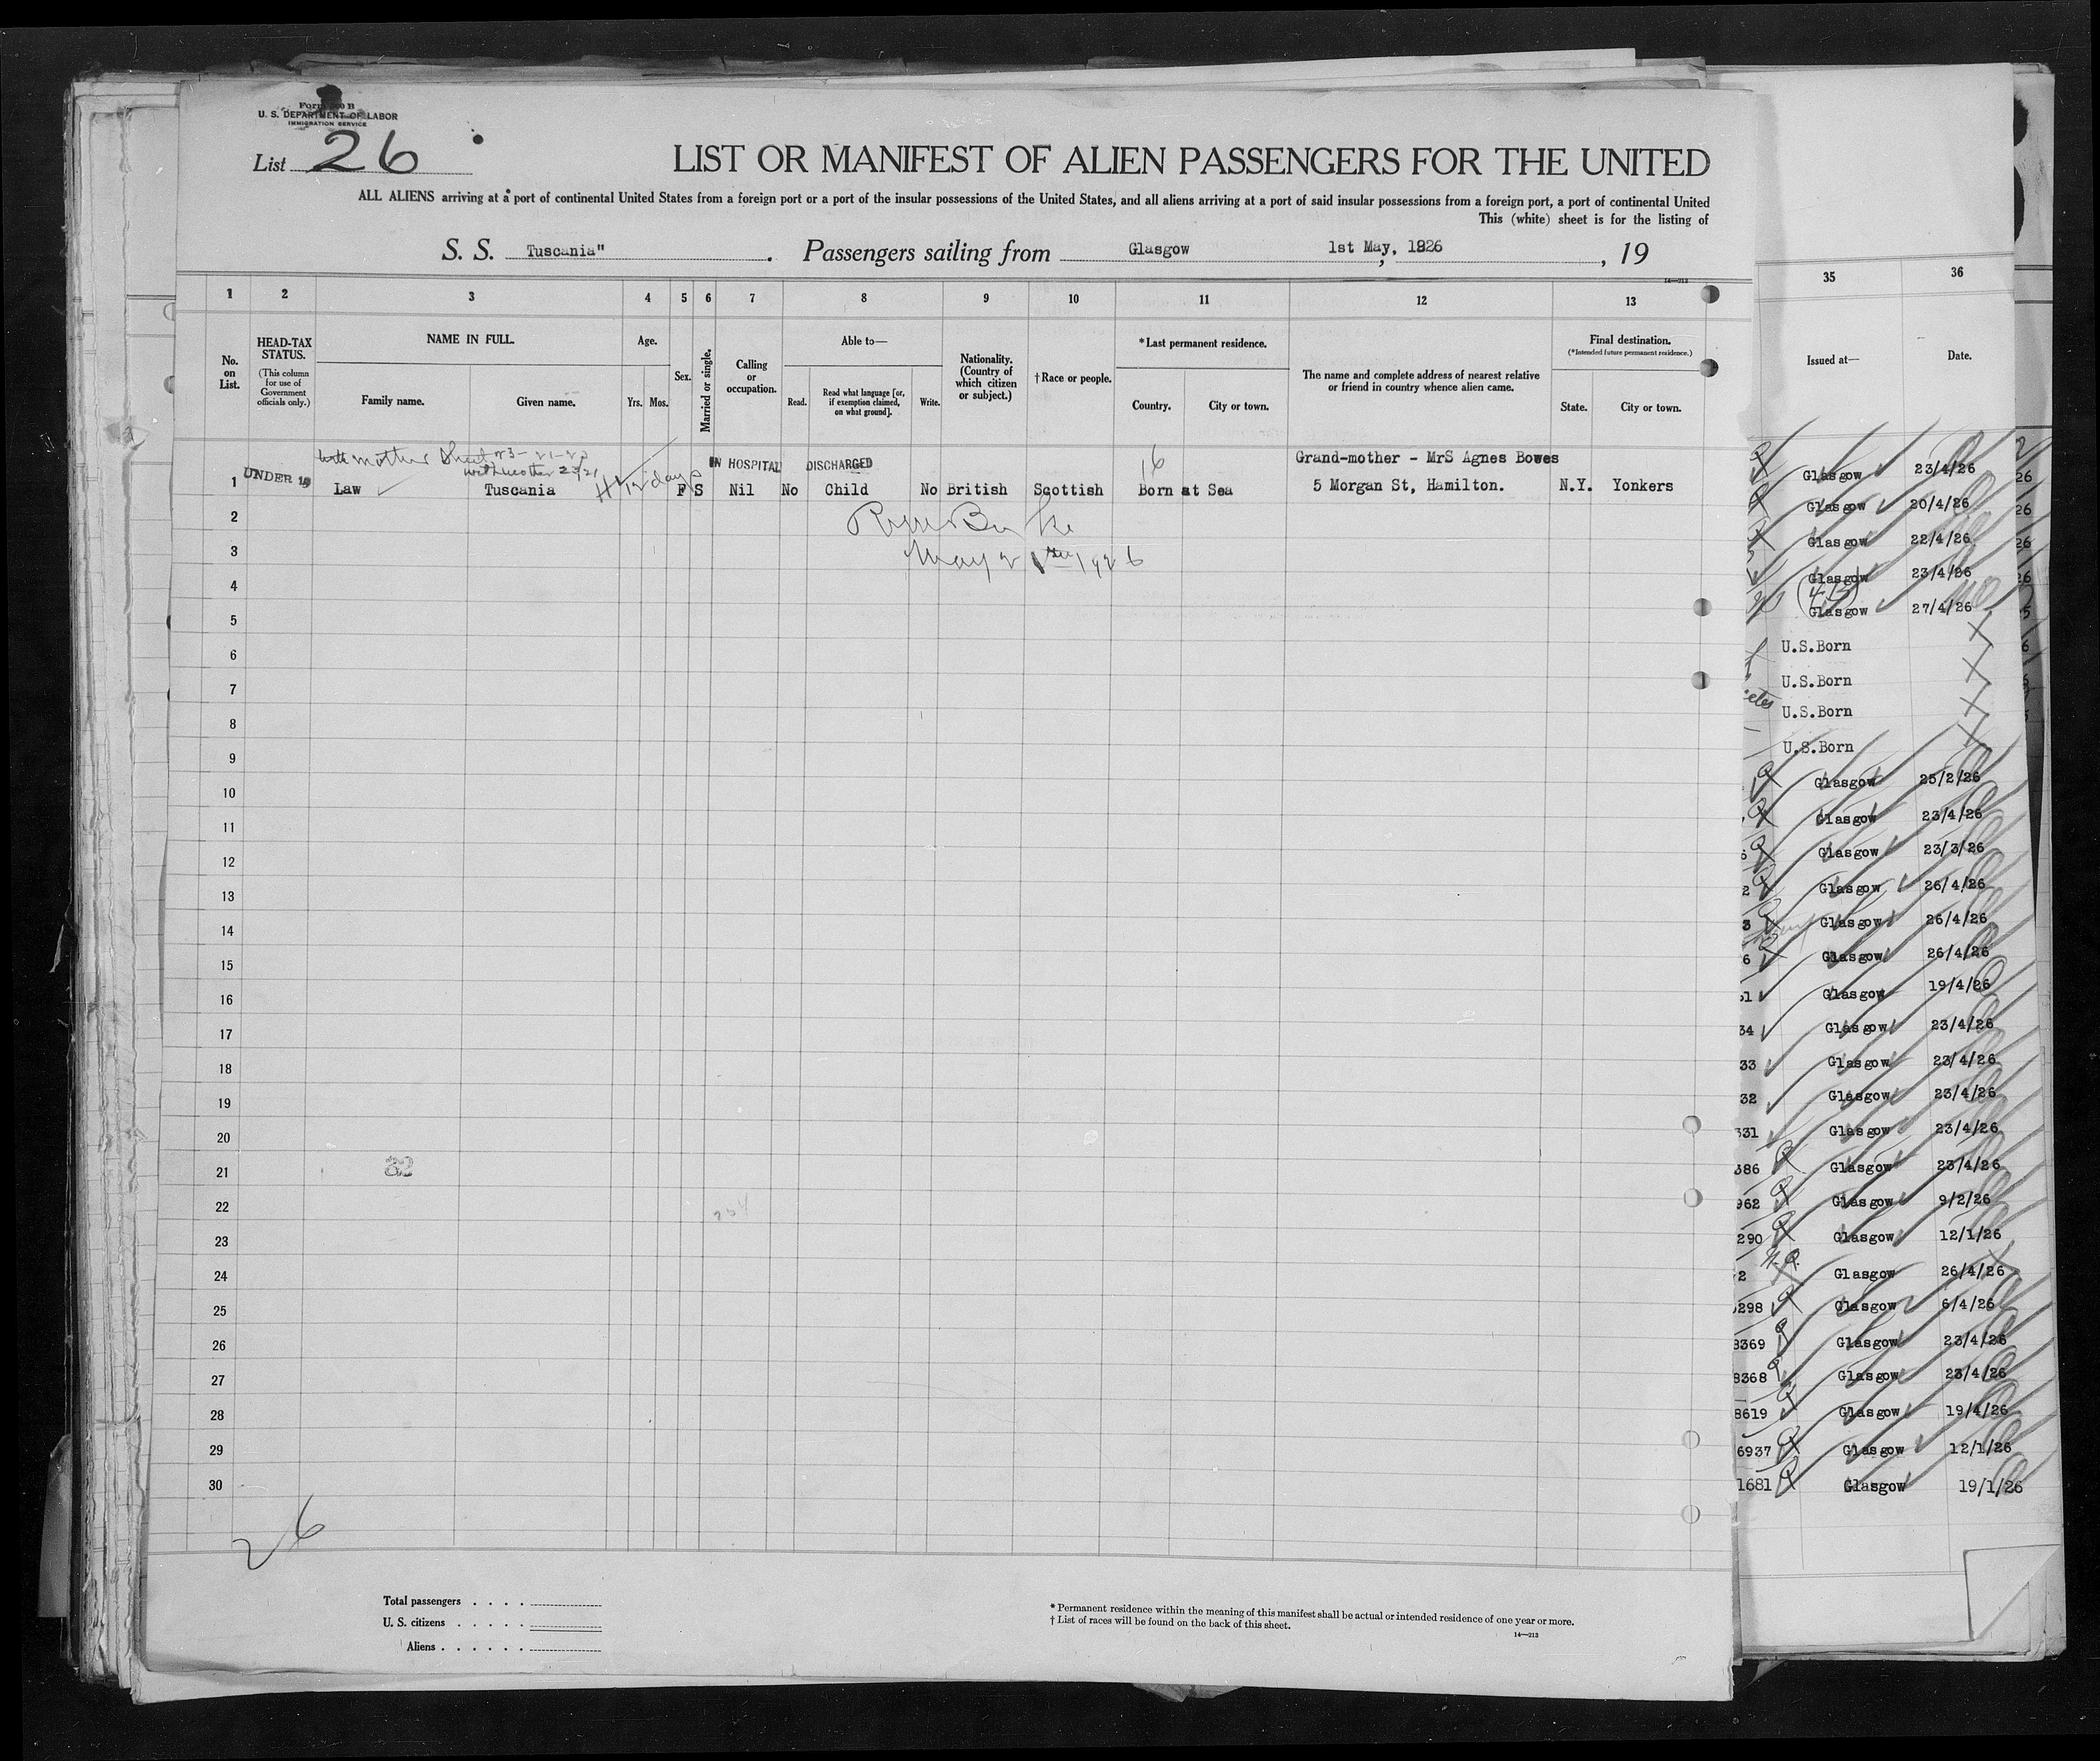 Form 500 B
U. S. DEPARTMENT OF LABOR
IMMIGRATION SERVICE
List 26
LIST OR MANIFEST OF ALIEN PASSENGERS FOR THE UNITED
ALL ALIENS arriving at a port of continental United States from a foreign port or a port of the insular possessions of the United States, and all aliens arriving at a port of said insular possessions from a foreign port, a port of continental United
This (white) sheet is for the listing of
S. S. Tuscania". Passengers sailing from Glasgow 1st May, 1926, 19
14—213
1 2 3 4 5 6 7 8 9 10 11 12 13
No. on List.
HEAD-TAX STATUS.
(This column for use of Government officials only.)
NAME IN FULL.
Family name.
Given name.
Age.
Yrs. Mos.
Sex.
Married or single.
Calling or occupation.
Able to—
Read.
Read what language [or, if exemption claimed, on what ground].
Write.
Nationality. (Country of which citizen or subject.)
† Race or people.
*Last permanent residence.
Country.
City or town.
The name and complete address of nearest relative or friend in country whence alien came.
Final destination.
(*Intended future permanent residence.)
State.
City or town.
with mother Sheet 23-21-22
with mother 23/21
IN HOSPITAL DISCHARGED
16
Grand-mother - MrS Agnes Bowes
1 UNDER 16 Law Tuscania 12 days F S Nil No Child No British Scottish Born at Sea 5 Morgan St, Hamilton. N.Y. Yonkers
2
3 May 21 1926
4
5
6
7
8
9
10
11
12
13
14
15
16
17
18
19
20
21 32
22 254
23
24
25
26
27
28
29
30
26
Total passengers
U. S. citizens
Aliens
* Permanent residence within the meaning of this manifest shall be actual or intended residence of one year or more.
† List of races will be found on the back of this sheet.
14—213
35 36
Issued at— Date.
Glasgow 23/4/26
Glasgow 20/4/26
Glasgow 22/4/26
Glasgow 23/4/26
Glasgow 27/4/26
U.S.Born
U.S.Born
U.S.Born
U.S.Born
Glasgow 25/2/26
Glasgow 23/4/26
Glasgow 23/3/26
Glasgow 26/4/26
Glasgow 26/4/26
Glasgow 26/4/26
Glasgow 19/4/26
34 Glasgow 23/4/26
33 Glasgow 23/4/26
32 Glasgow 23/4/26
331 Glasgow 23/4/26
386 Glasgow 23/4/26
962 Glasgow 9/2/26
290 Glasgow 12/1/26
2 Glasgow 26/4/26
298 Glasgow 6/4/26
8369 Glasgow 23/4/26
8368 Glasgow 23/4/26
8619 Glasgow 19/4/26
6937 Glasgow 12/1/26
1681 Glasgow 19/1/26